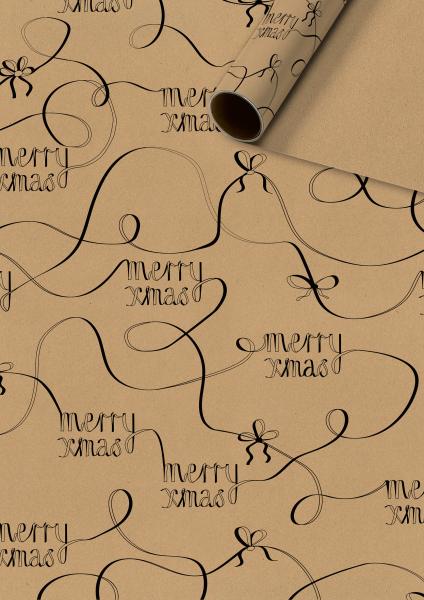 xmas
merry
xmas
merry
xmas
merry
xmas
merry
xmas
merry
xmas
merry
xmas
merry
xmas
merry
xmas